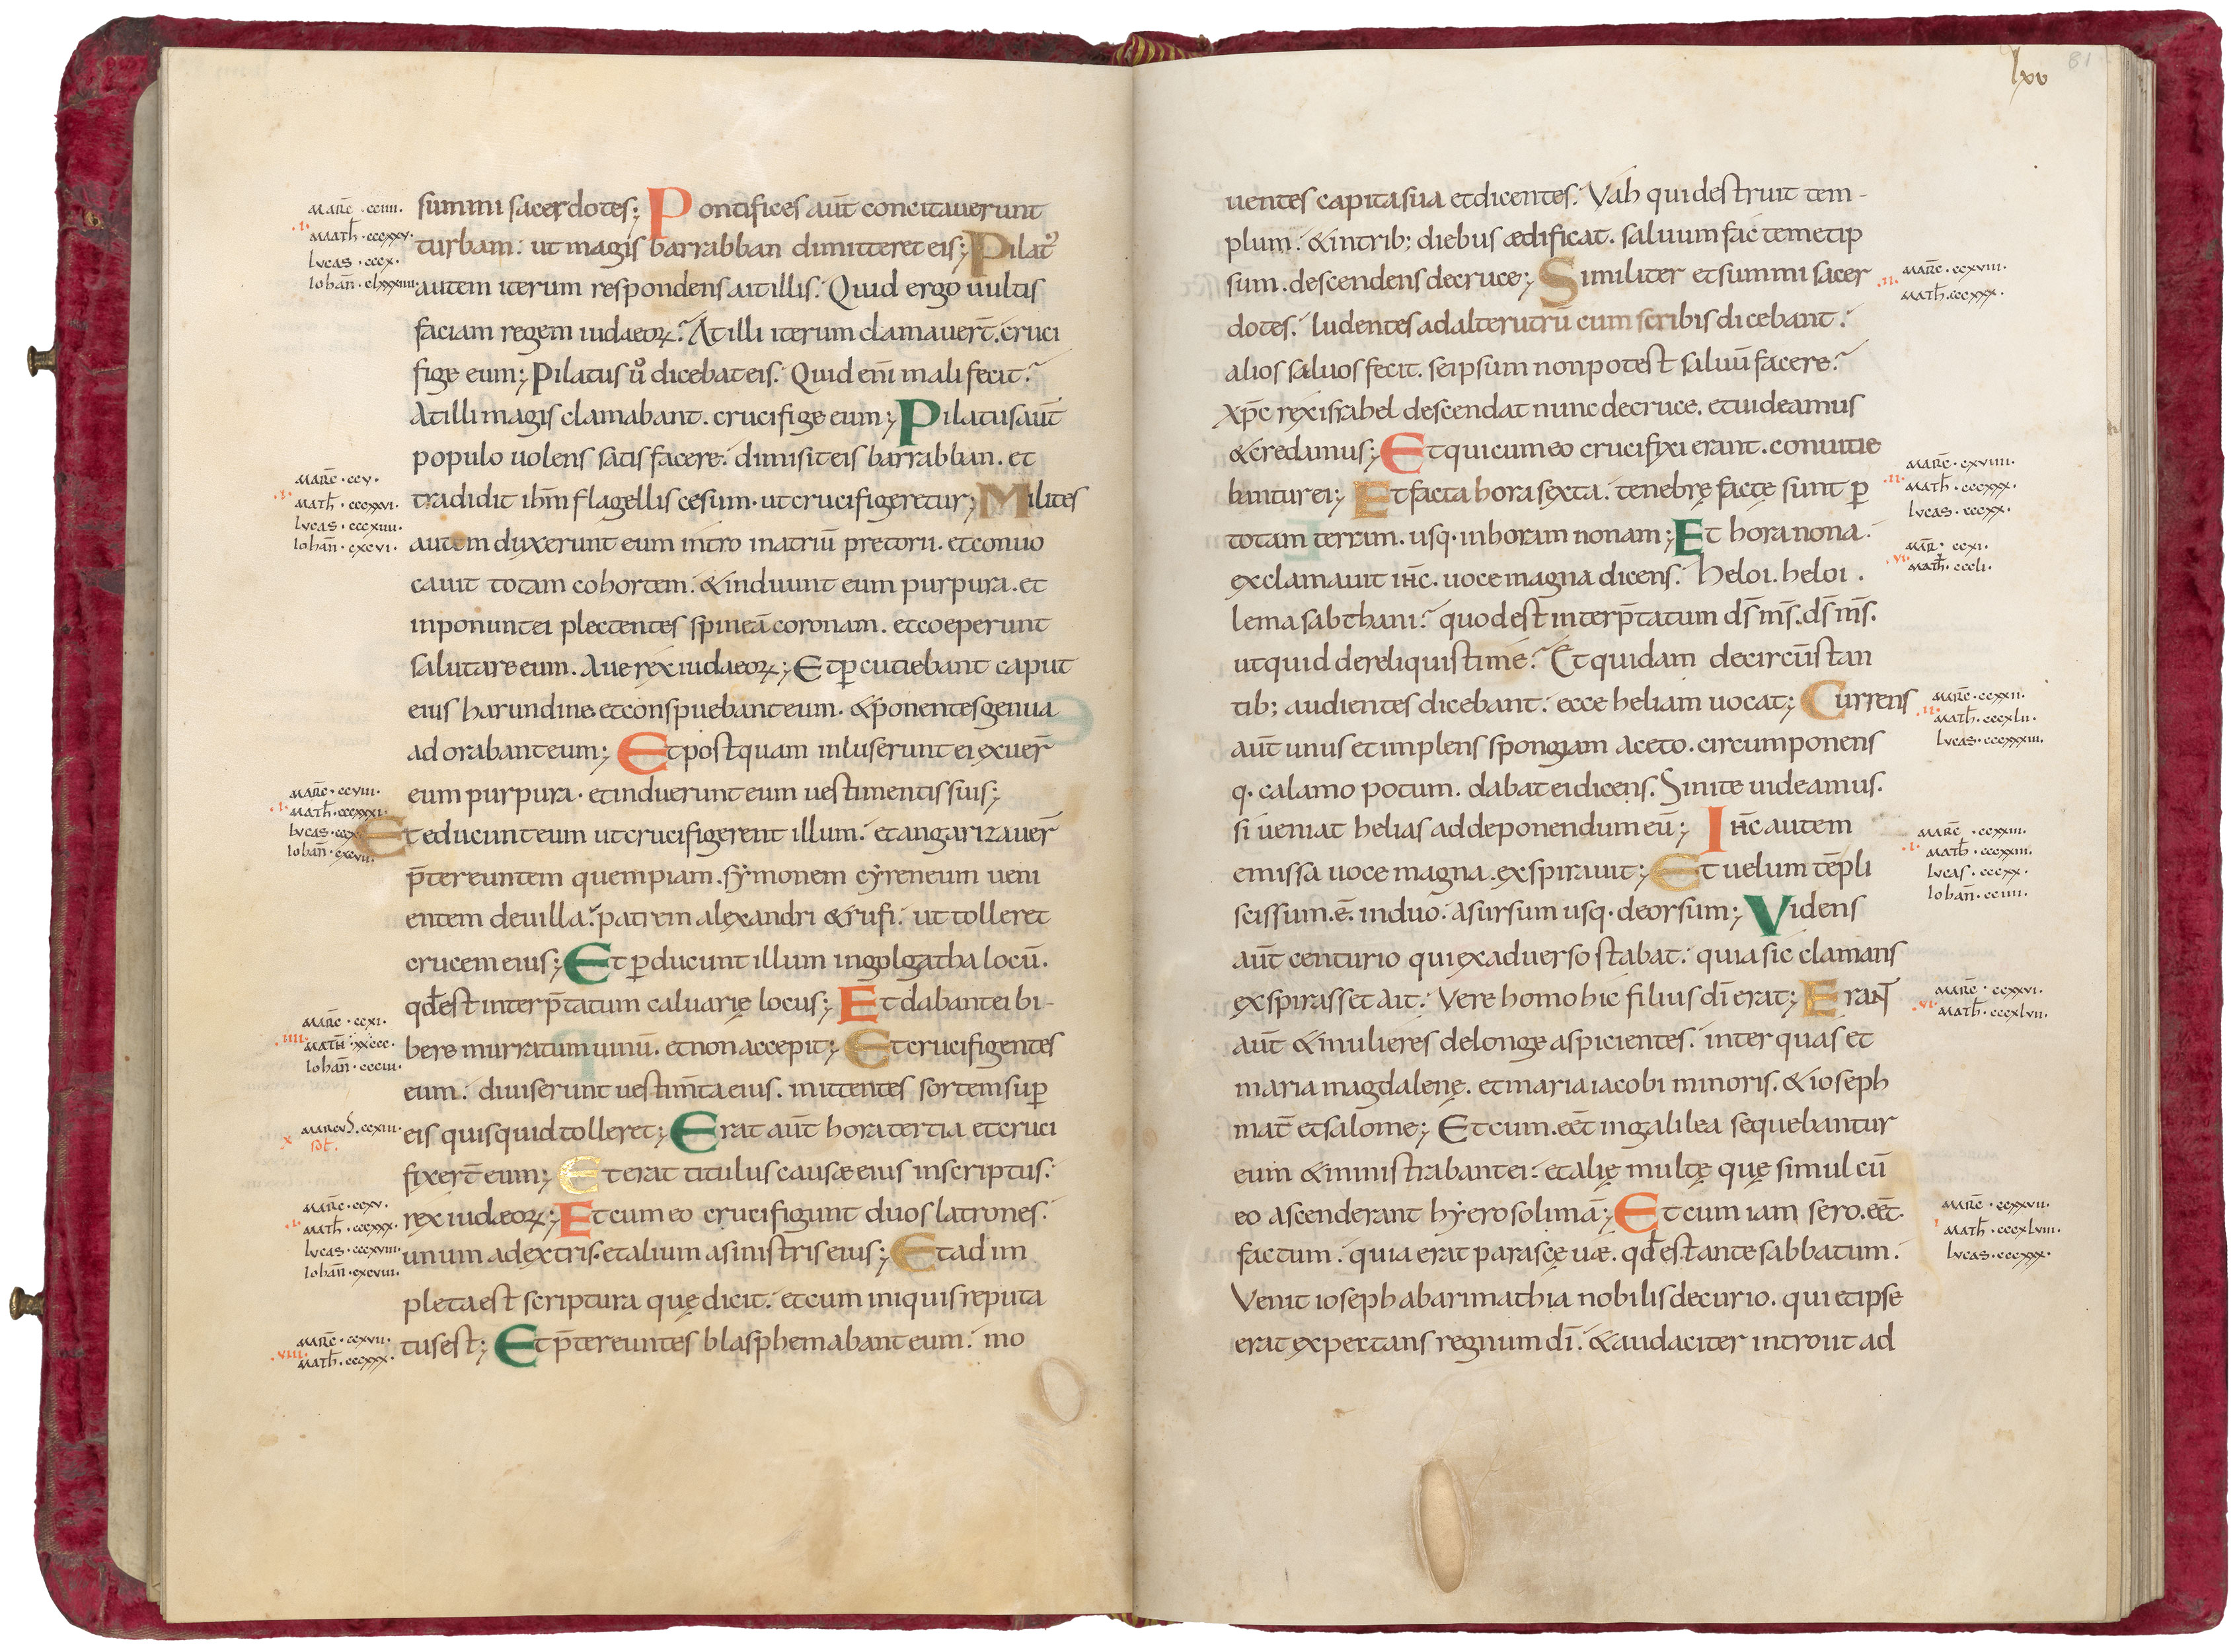 marc̄ · cciiii.
.i.
math̄ · cccxxv.
lvcas · cccx.
iohan̄ · clxxxiiii.
summi sacerdotes; Pontifices aut̄ concitauerunt
turbam: ut magis barrabban dimitteret eis; Pilatꝰ
autem iterum respondens ait illis. Quid ergo uultis
faciam regem iudaeoꝝ? At illi iterum clamauer̄t. cruci
fige eum; Pilatus ů dicebat eis. Quid eni̅ mali fecit?
At illi magis clamabant. crucifige eum; Pilatus aut̄
populo uolens satisfacere: dimisit eis barrabban. et
marc̄ · ccv.
.i.
math̄ · cccxxvi.
lvcas · cccxiiii.
iohan̄ · cxcvi.
tradidit ihm̄ flagellis cesum · ut crucifigeretur; Milites
autem duxerunt eum intro in atriū pretorii. et conuo
cauit totam cohortem: & induunt eum purpura. et
inponunt ei plectentes spineā coronam. et coeperunt
salutare eum. Aue rex iudaeoꝝ; Et ꝑcutiebant caput
eius harundine. et conspuebant eum. & p̄onentes genua
adorabant eum; Et postquam inluserunt ei exuer̄
marc̄ · ccviii.
.i.
math̄ · cccxxxi.
lvcas · cccx
iohan̄ · cxcvii.
eum purpura · et induerunt eum uestimentis suis;
Et educunt eum ut crucifigerent illum: et angarizauer̄
p̄tereuntem quempiam. symonem cyreneum ueni
entem de uilla: patrem alexandri & rufi: ut tolleret
crucem eius; Et ꝑducunt illum in golgatha locū.
qd̄ est interp̄tatum caluarię locus; Et dabant ei bi-
marc̄ · ccxi.
.iiii.
math̄ · xxccc.
iohan̄ · cciii.
bere murratum uinū. et non accepit; Et crucifigentes
eum: diuiserunt uestim̄ta eius. mittentes sortem suꝑ
marcvs. ccxiii.
x
sol̄.
eis quis quid tolleret; Erat aut̄ hora tertia et cruci
fixer̄t eum; Et erat titulus causae eius inscriptus:
marc̄ · ccxv.
.i.
math̄ · cccxxx.
lvcas · cccxviii.
iohan̄ · cxcviii.
rex iudaeoꝝ; Et cum eo crucifigunt duos latrones:
unum a dextris. et alium a sinistris eius; Et adim
pleta est scriptura quę dicit: et cum iniquis reputa
marc̄ · ccxvii.
.viii.
math̄ · cccxxx.
tus est; Et p̄tereuntes blasphemabant eum: mo
lxv
81
uentes capita sua et dicentes: Vah qui destruit tem-
plum: & in trib; diebus aedificat. saluum fac temetip
sum. descendens de cruce; Similiter et summi sacer
.ii.
marc̄ · ccxviii.
math̄. cccxxx.
dotes: ludentes ad alterutrū cum scribis dicebant:
alios saluos fecit. se ipsum non potest saluū facere?
xp̄c rex israhel descendat nunc de cruce. et uideamus
& credamus; Et qui cum eo crucifixi erant. conuitie
bantur ei; Et facta hora sexta: tenebrę factę sunt ꝑ
marc̄ · cxviiii.
.ii.
math̄ · cccxxx.
lvcas · cccxx.
totam terram. usq· in horam nonam; Et hora nona:
mar̄ · ccxi.
.vi.
math̄ · cccli.
exclamauit ih̄c. uoce magna dicens: Heloi. heloi.
lema sabthani? quod est interp̄tatum ds̄ ms̄. ds̄ ms̄.
ut quid dereliquisti me? Et quidam de circūstan
tib; audientes dicebant: ecce heliam uocat; Currens
marc̄ · ccxxii.
.ii.
math̄ · cccxlii.
lvcas · cccxxxiii.
aut̄ unus et implens spongiam aceto. circumponens
q· calamo potum. dabat ei dicens. Sinite uideamus.
si ueniat helias ad deponendum eū; Ih̄c autem
marc̄ · ccxxiii.
.i.
math̄ · cccxxiii.
lvcas · cccxx.
iohan̄ · cciiii.
emissa uoce magna. exspirauit; Et uelum tēpli
scissum. ē. in duo: a sursum usq· deorsum; Videns
aut̄ centurio qui ex aduerso stabat: quia sic clamans
exspirasset ait: Vere homo hic filius dī erat; Erant
marc̄ · ccxxvi.
.vi.
math̄ · cccxlvii.
aut̄ & mulieres de longe aspicientes: inter quas et
maria magdalenę. et maria iacobi minoris. & ioseph
mat̄ et salome; Et cum. eēt in galilea sequebantur
eum & ministrabant ei: et alię multę quę simul cū
eo ascenderant hyerosolimā; Et cum iam sero. eēt.
marc̄ · ccxxvii.
.i.
math̄ · cccxlviii.
lvcas · cccxxx.
factum: quia erat parasceuae. qd̄ est ante sabbatum:
Venit ioseph ab arimathia nobilis decurio. qui et ipse
erat expectans regnum dī: & audaciter introiit ad